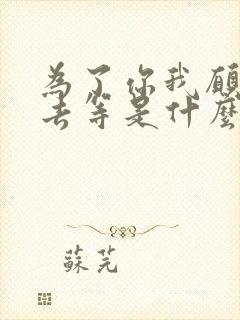 為了你我願
去等是什麼
蘇芫